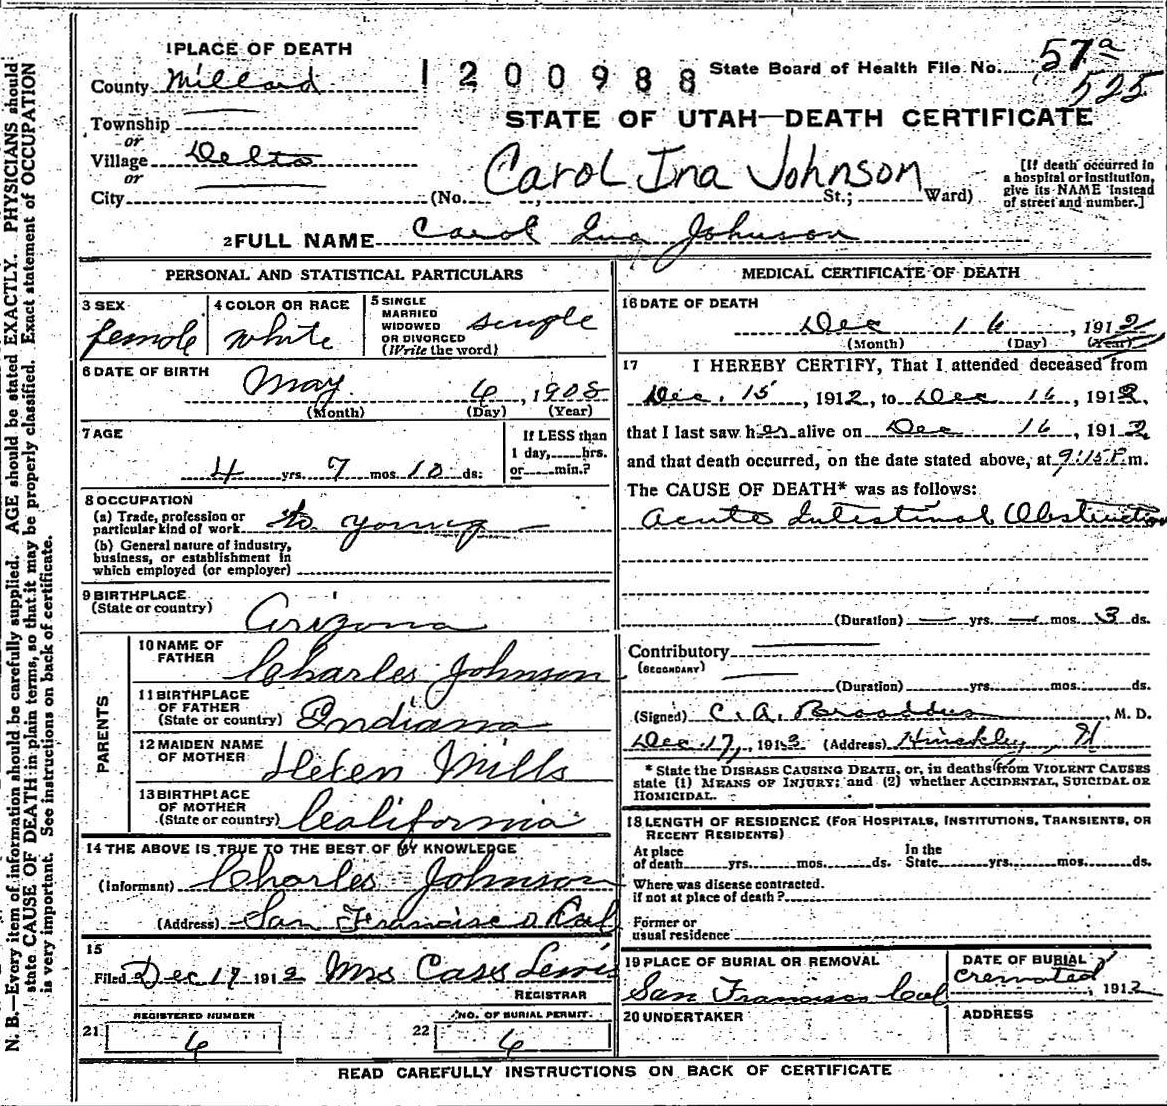 1 PLACE OF DEATH
County Millard
1200988
State Board of Health File No. 57 a
525
STATE OF UTAH—DEATH CERTIFICATE
Township
or
Village Delta
or
City
(No. , St.; Ward)
Carol Ina Johnson
[If death occurred in
a hospital or institution,
give its NAME instead
of street and number.]
2 FULL NAME Carol Ina Johnson
PERSONAL AND STATISTICAL PARTICULARS
3 SEX
female
4 COLOR OR RACE
white
5 SINGLE
MARRIED
WIDOWED
OR DIVORCED
(Write the word)
single
6 DATE OF BIRTH
May 6, 1908
(Month) (Day) (Year)
7 AGE
4 yrs. 7 mos. 10 ds.
If LESS than
1 day, hrs.
or min.?
8 OCCUPATION
(a) Trade, profession or
particular kind of work to young
(b) General nature of industry,
business, or establishment in
which employed (or employer)
9 BIRTHPLACE
(State or country)
Arizona
PARENTS
10 NAME OF
FATHER
Charles Johnson
11 BIRTHPLACE
OF FATHER
(State or country)
Indiana
12 MAIDEN NAME
OF MOTHER
Helen Mills
13 BIRTHPLACE
OF MOTHER
(State or country)
California
14 THE ABOVE IS TRUE TO THE BEST OF MY KNOWLEDGE
(Informant) Charles Johnson
(Address) San Francisco Cal
15
Filed Dec 17 1912 Mrs Cass Lewis
REGISTRAR
21 REGISTERED NUMBER
6
22 NO. OF BURIAL PERMIT.
6
MEDICAL CERTIFICATE OF DEATH
16 DATE OF DEATH
Dec 16, 1912
(Month) (Day) (Year)
17 I HEREBY CERTIFY, That I attended deceased from
Dec. 15, 1912, to Dec 16, 1912,
that I last saw her alive on Dec 16, 1912,
and that death occurred, on the date stated above, at 9:15 P.m.
The CAUSE OF DEATH* was as follows:
Acute Intestinal Obstruction
(Duration) — yrs. — mos. 3 ds.
Contributory
(SECONDARY)
(Duration) yrs. mos. ds.
(Signed) C. A. Broaddus, M. D.
Dec. 17, 1913 (Address) Hinckley,
* State the DISEASE CAUSING DEATH, or, in deaths from VIOLENT CAUSES
state (1) MEANS OF INJURY; and (2) whether ACCIDENTAL, SUICIDAL OR
HOMICIDAL.
18 LENGTH OF RESIDENCE (FOR HOSPITALS, INSTITUTIONS, TRANSIENTS, OR
RECENT RESIDENTS)
At place
of death yrs. mos. ds.
In the
State yrs. mos. ds.
Where was disease contracted.
if not at place of death?
Former or
usual residence
19 PLACE OF BURIAL OR REMOVAL
San Francisco Cal
DATE OF BURIAL
cremated, 1912
20 UNDERTAKER
ADDRESS
READ CAREFULLY INSTRUCTIONS ON BACK OF CERTIFICATE
N. B.—Every item of information should be carefully supplied. AGE should be stated EXACTLY. PHYSICIANS should
state CAUSE OF DEATH in plain terms, so that it may be properly classified. Exact statement of OCCUPATION
is very important. See instructions on back of certificate.